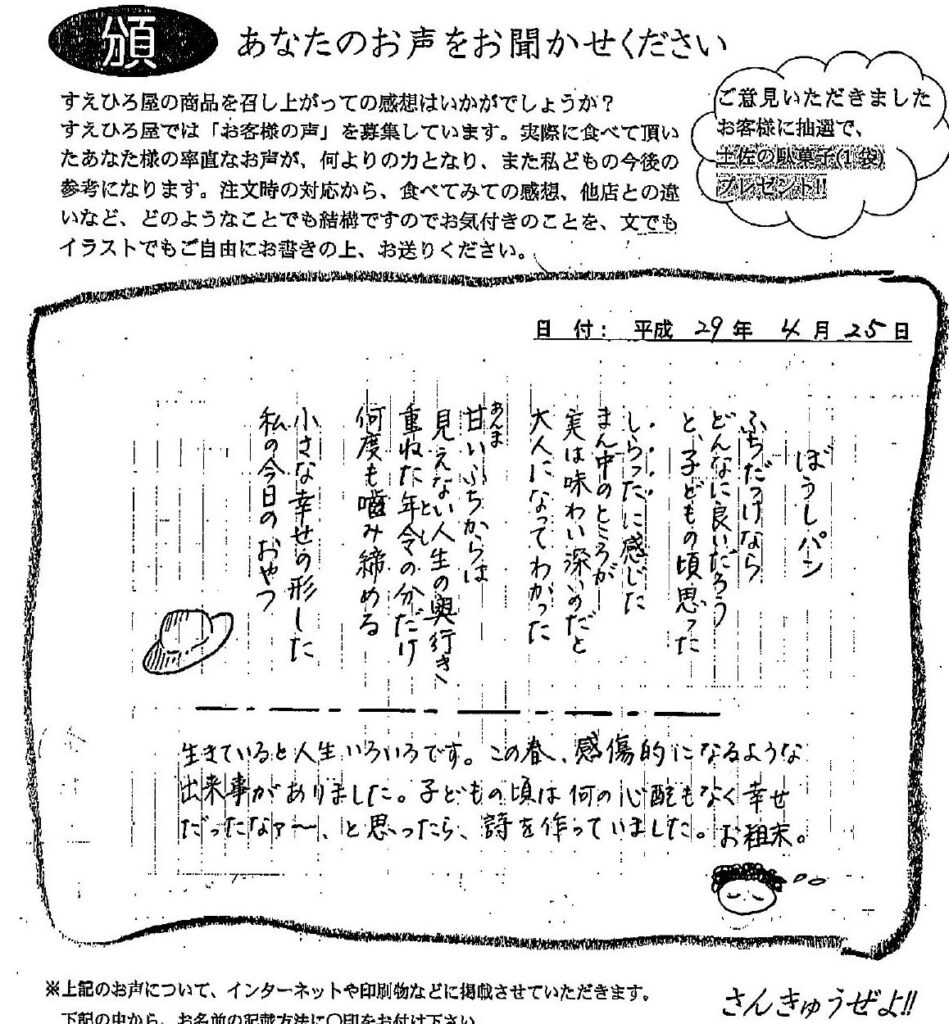 頒
あなたのお声をお聞かせください
すえひろ屋の商品を召し上がっての感想はいかがでしょうか？
すえひろ屋では「お客様の声」を募集しています。実際に食べて頂い
たあなた様の率直なお声が、何よりの力となり、また私どもの今後の
参考になります。注文時の対応から、食べてみての感想、他店との違
いなど、どのようなことでも結構ですのでお気付きのことを、文でも
イラストでもご自由にお書きの上、お送りください。
ご意見いただきました
お客様に抽選で、
土佐の駄菓子(1袋)
プレゼント!!
日 付： 平成 29 年 4 月 25 日
ぼうしパン
ふちだっけなら
どんなに良いだろう
と、子どもの頃思った
しらったに感じた
まん中のところが
実は味わい深いのだと
大人になってわかった
あんま
甘いふちからは
見えない人生の奥行き、
とし
重ねた年令の分だけ
何度も噛み締める
小さな幸せの形した
私の今日のおやつ
生きていると人生いろいろです。この春、感傷的になるような
出来事がありました。子どもの頃は何の心配もなく幸せ
だったなァ〜、と思ったら、詩を作っていました。お粗末。
※上記のお声について、インターネットや印刷物などに掲載させていただきます。
下記の中から、お名前の記載方法に〇印をお付け下さい
さんきゅうぜよ!!